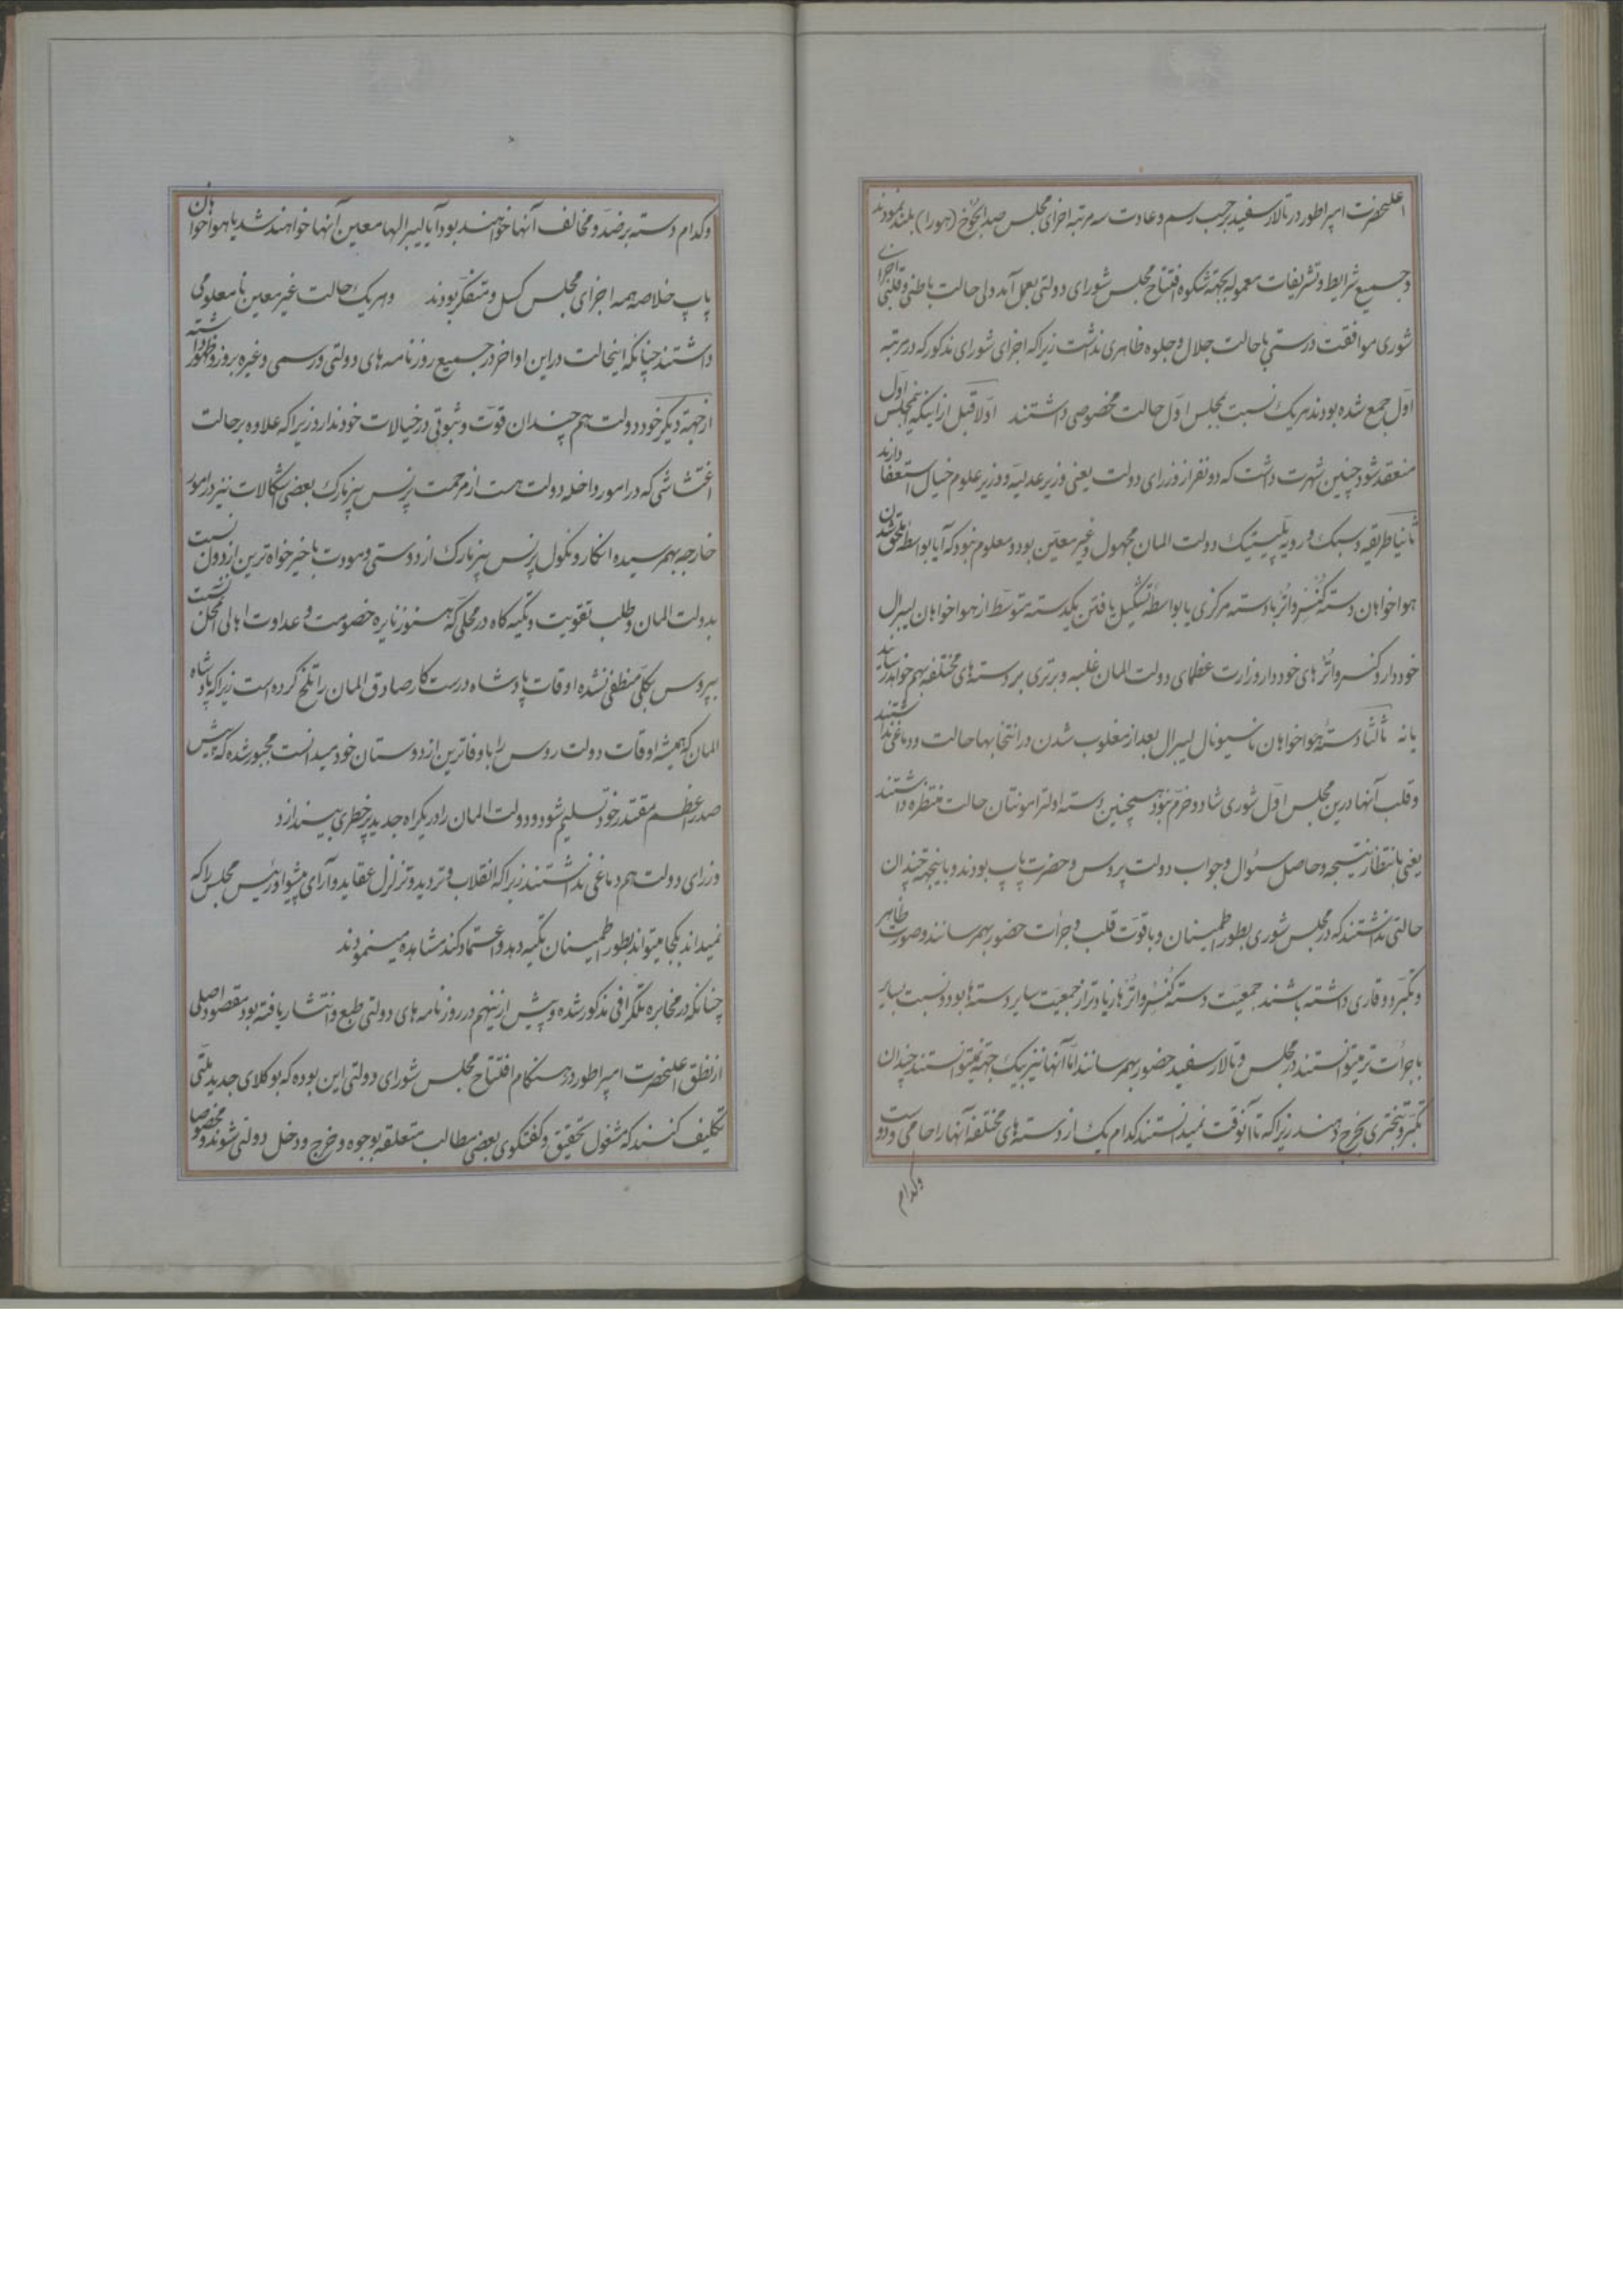 اعلیحضرت امپراطور در تالار سفید بر حسب رسم و عادت سه مرتبه اجزای مجلس صدا بچوخ (هورا) بلند نمودند
و جمیع شرایط و تشریفات معموله بجهة شکوه افتتاح مجلس شورای دولتی بعمل آمد ولی حالت باطنی و قلبی اجزای
شوری موافقت درستی با حالت جلال و جلوه ظاهری نداشت زیرا که اجزای شورای مذکور که در مرتبه
اول جمع شده بودند هر یک نسبت بمجلس اول حالت مخصوصی داشتند اولا قبل از اینکه مجلس اول
منعقد شود چنین شهرت داشت که دو نفر از وزرای دولت یعنی وزیر عدلیه و وزیر علوم خیال استعفا دارند
ثانیا طریقه و سبک و رویه پلیتیک دولت المان مجهول و غیر معین بود و معلوم نبود که آیا بواسطه ملحق شدن
هواخواهان دسته کنسرواتر با دسته مرکزی یا بواسطه تشکیل یافتن یکدسته متوسط از هواخواهان لیبرال
خوددار و کنسرواترهای خوددار وزارت عظمای دولت المان غلبه و برتری بر دسته های مختلفه بهم خواهد رسانید
یا نه ثالثا دسته هواخواهان ناسیونال لیبرال بعد از مغلوب شدن در انتخابها حالت و دماغی نداشتند
و قلب آنها درین مجلس اول شوری شاد و خرم نبود همچنین دسته اولترامونتان حالت منتظره داشتند
یعنی بانتظار نتیجه و حاصل سئوال و جواب دولت پروس و حضرت پاپ بودند و باینجهة چندان
حالتی نداشتند که در مجلس شوری بطور اطمینان و با قوت قلب و جرات حضور بهمرسانند و صورت ظاهر
و تکبر و وقاری داشته باشند جمعیت دسته کنسرواترها زیادتر از جمعیت سایر دسته ها بود و نسبت بسایر
با جرات تر میتوانستند در مجلس و تالار سفید حضور بهمرسانند اما آنها نیز بیک جهة نمیتوانستند چندان
تکبر و تبختری بخرج دهند زیرا که تا آنوقت نمیدانستند کدام یک از دسته های مختلفه آنها را حامی و دوست
و کدام
و کدام دسته بر ضد و مخالف آنها خواهند بود آیا لیبرالها معین آنها خواهند شد یا هواخواهان
پاپ خلاصه همه اجزای مجلس کسل و متفکر بودند و هر یک حالت غیر معین نامعلومی
داشتند چنانکه اینحالت در این اواخر در جمیع روزنامه های دولتی و رسمی و غیره بروز و ظهور داشته
از جهة دیگر خود دولت هم چندان قوت و ثبوتی در خیالات خود ندارد زیرا که علاوه بر حالت
اغتشاشی که در امور داخله دولت هست از مرحمت پرنس بیزمارک بعضی اشکالات نیز در امور
خارجه بهمرسیده انکار و نکول پرنس بیزمارک از دوستی و مودت با خیرخواه ترین از دول نسبت
بدولت المان و طلب تقویت و تکیه گاه در محلی که هنوز نایره خصومت و عداوت اهالی آن محل نسبت
بپروس بکلی منطفی نشده اوقات پادشاه درست کار صادق المان را تلخ کرده است زیرا که پادشاه
المان که همیشه اوقات دولت روس را با وفاترین از دوستان خود میدانست مجبور شده که پیش
صدر اعظم مقتدر خود تسلیم شود و دولت المان را در یکراه جدید پر خطری بیندازد
وزرای دولت هم دماغی نداشتند زیرا که انقلاب و تردید و تزلزل عقاید و آرای پیشوا و رئیس مجلس را که
نمیداند بکجا میتواند بطور اطمینان تکیه دهد و اعتماد کند مشاهده مینمودند
چنانکه در مخابره تلگرافی مذکور شده و پیش از اینهم در روزنامه های دولتی طبع و انتشار یافته بود مقصود اصلی
از نطق اعلیحضرت امپراطور در هنگام افتتاح مجلس شورای دولتی این بوده که بوکلای جدید ملتی
تکلیف کنند که مشغول تحقیق و گفتگوی بعضی مطالب متعلقه بوجوه و خرج و دخل دولتی شوند و مخصوصا